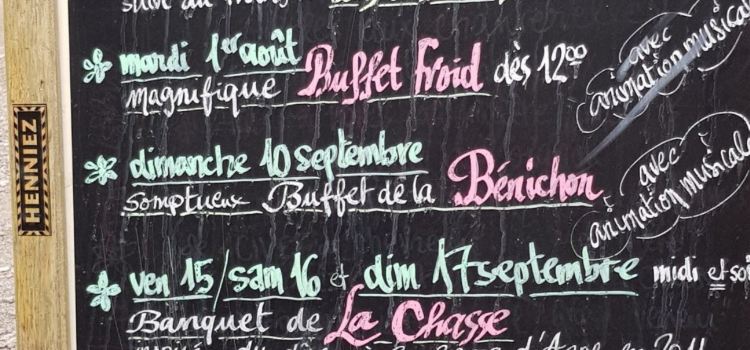 mardi 1er août Buffet froid dès 12°°
magnifique
avec
animation musicale
dimanche 10 septembre
somptueux Buffet de la Bénichon
avec
animation musicale
ven 15/sam 16 et dim 17 septembre midi et soir
Banquet de La Chasse
HENNIEZ